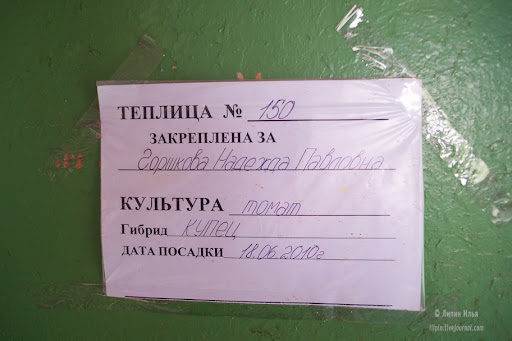 ТЕПЛИЦА № 150
ЗАКРЕПЛЕНА ЗА
Горшкова Надежда Павловна
КУЛЬТУРА томат
Гибрид КУПЕЦ
ДАТА ПОСАДКИ 18.06.2010г
© Литин Илья